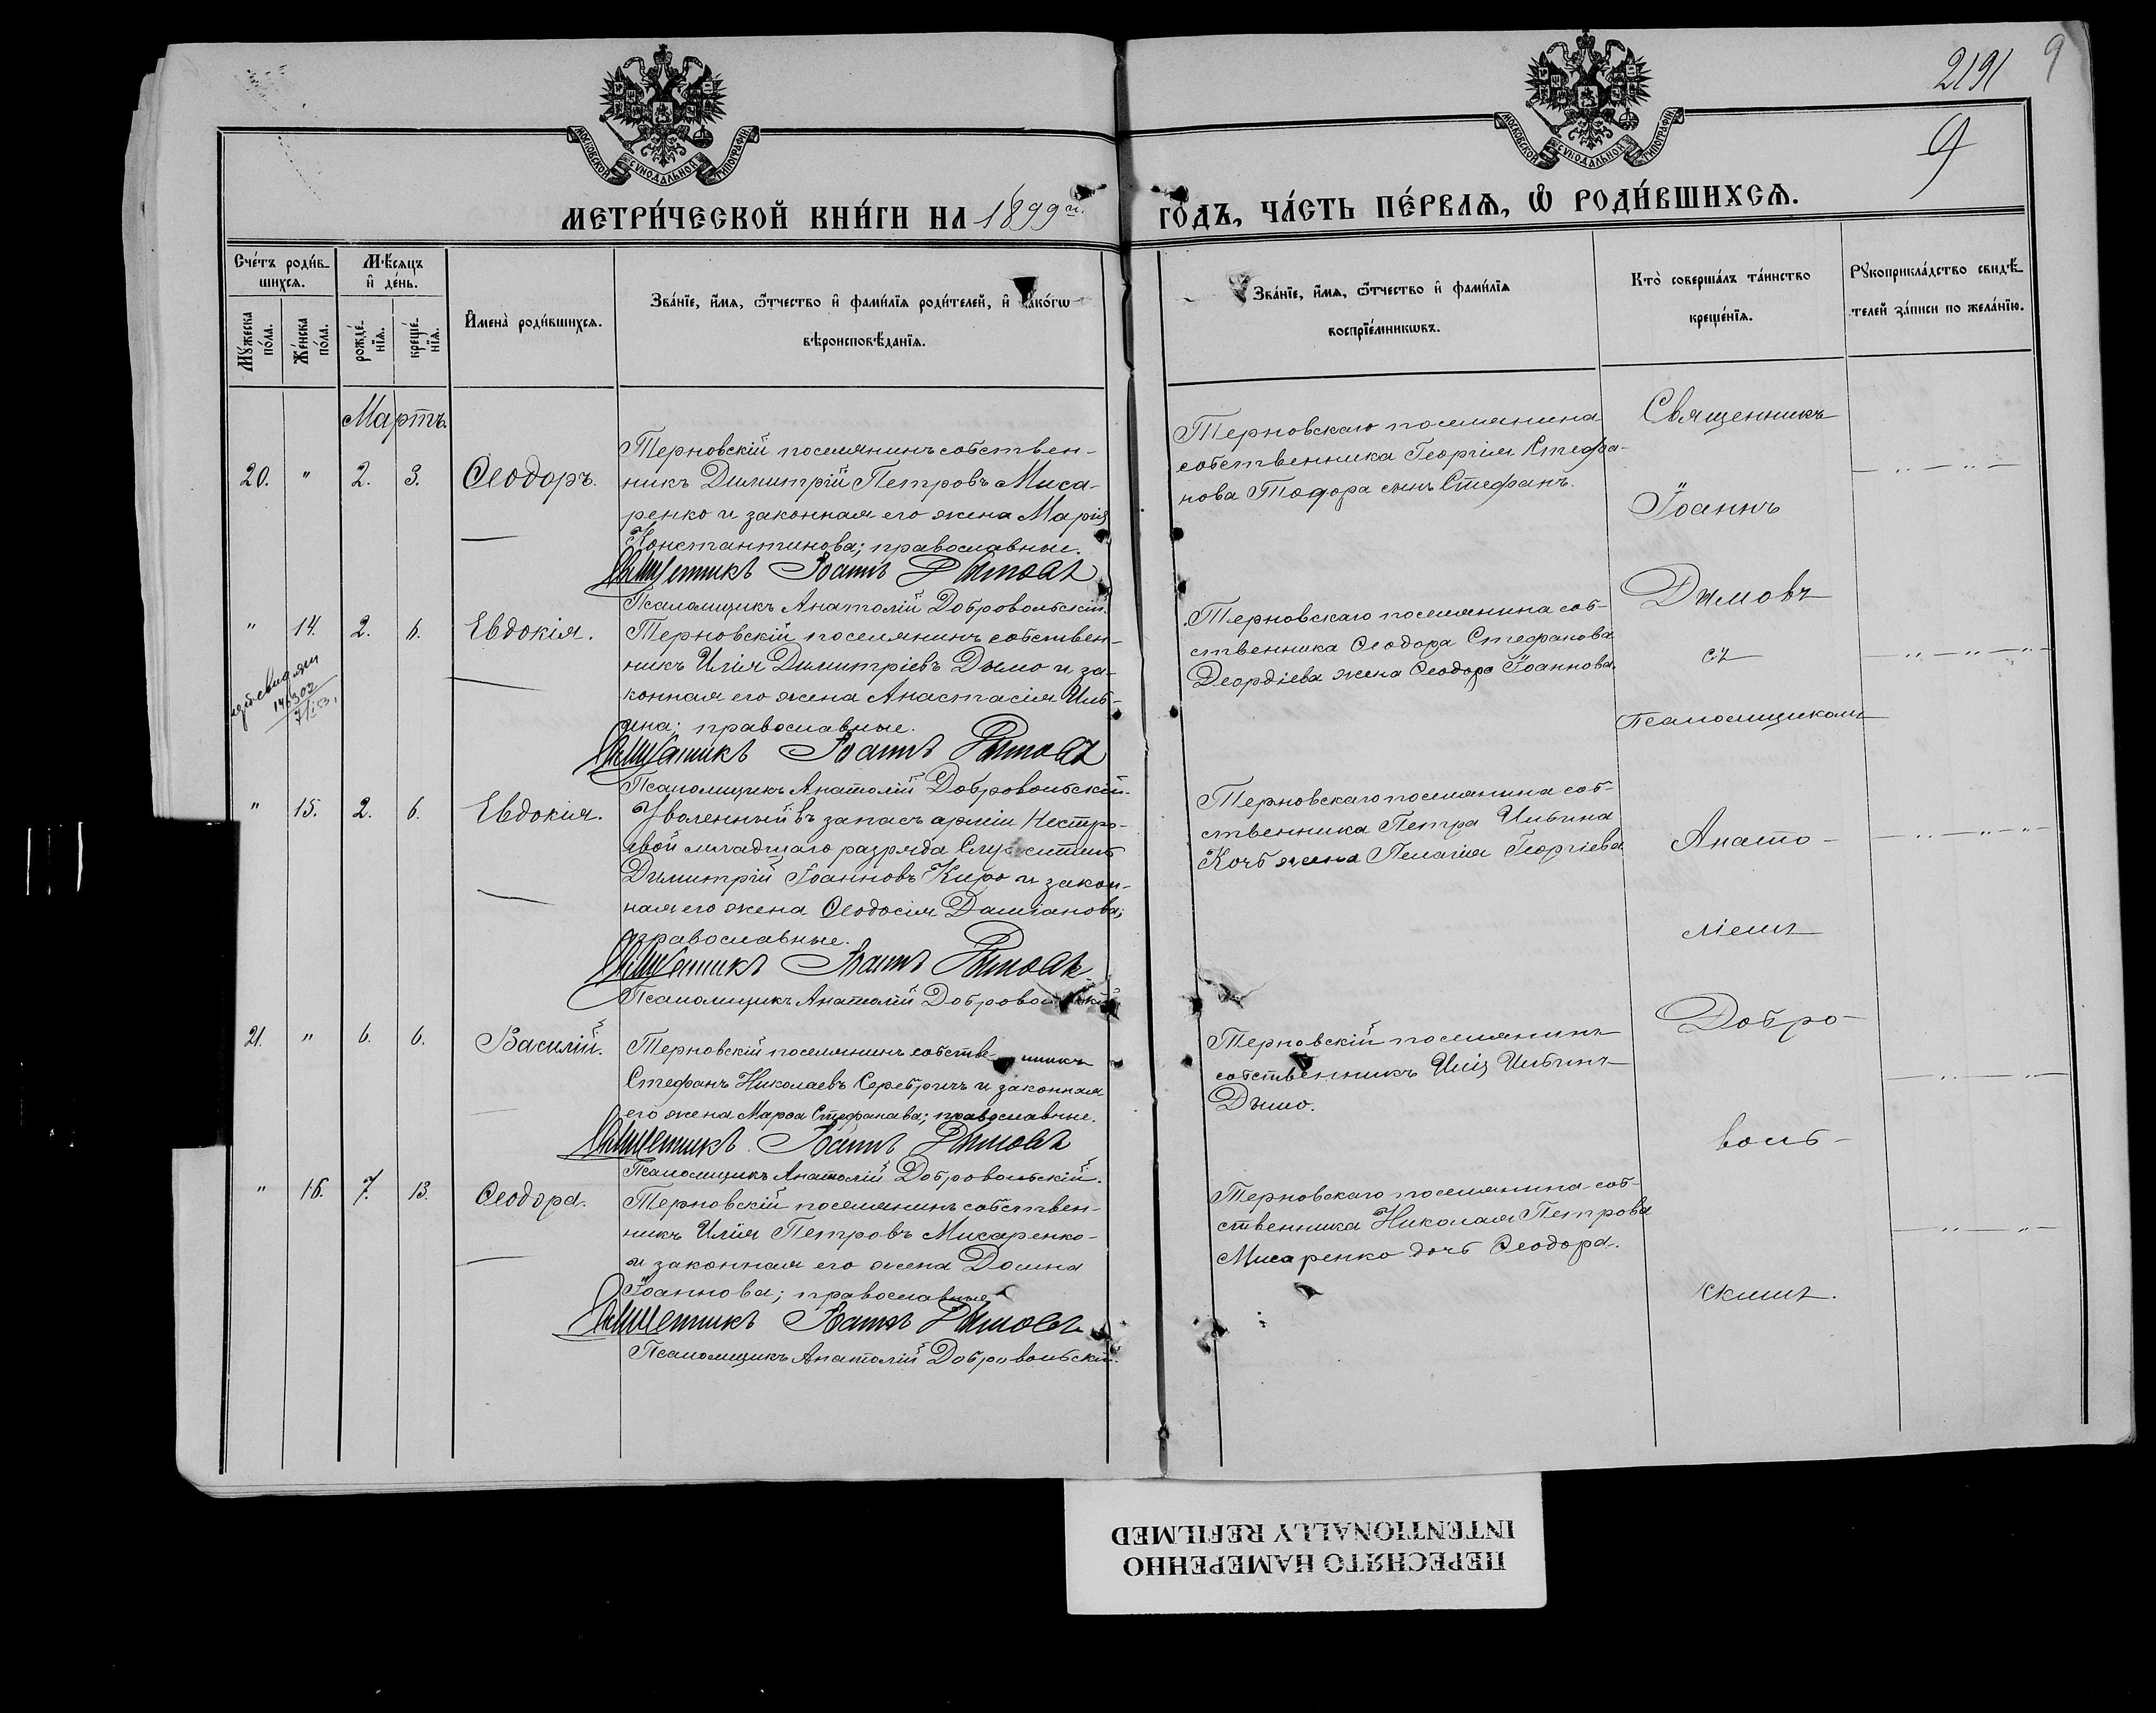 2191 9
9
МОСКОВСКОЙ СѴНОДАЛЬНОЙ ТИПОГРАФІИ
МОСКОВСКОЙ СѴНОДАЛЬНОЙ ТИПОГРАФІИ
МЕТРИ́ЧЕСКОЙ КНИ́ГИ НА 1899 й. ГО́ДЪ, ЧА́СТЬ ПЕ́РВАѦ, Ѽ РОДИ́ВШИХСѦ.
Сче́тъ роди́в-
шихсѧ.
Мꙋ́жеска по́ла.
Же́нска по́ла.
Мѣ́сѧцъ и҆ де́нь.
рожде́-нїѧ.
креще́-нїѧ.
И҆мена̀ роди́вшихсѧ.
Зва́нїе, и҆́мѧ, ѻ҆́тчество и҆ фами́лїѧ роди́телей, и҆ како́гѡ
вѣроисповѣ́данїѧ.
Зва́нїе, и҆́мѧ, ѻ҆́тчество и҆ фами́лїѧ
воспрїе́мникѡвъ.
Кто̀ соверша́лъ та́инство
креще́нїѧ.
Рꙋкоприкла́дство свидѣ́-
телей за́писи по жела́нїю.
Мартъ.
20. " 2. 3. Ѳеодоръ.
Терновскій поселянинъ собствен-
никъ Димитрій Петровъ Миса-
ренко и законная его жена Марія
Константинова; православные.
Священникъ Іоаннъ Дымовъ
Псаломщикъ Анатолій Добровольскій.
Терновскаго поселянина
собственника Георгія Стефа-
нова Тодора сынъ Стефанъ.
" 14. 2. 6. Евдокія.
Терновскій поселянинъ собствен-
никъ Илія Димитріевъ Дымо и за-
конная его жена Анастасія Иль-
ина; православные.
Священникъ Іоаннъ Дымовъ
Псаломщикъ Анатолій Добровольскій.
Терновскаго поселянина соб-
ственника Ѳеодора Стефанова
Деордіева жена Ѳеодора Іоаннова.
" 15. 2. 6. Евдокія.
Уволенный въ запасъ арміи
младшаго разряда
Димитрій Іоанновъ Киро и закон-
ная его жена Ѳеодосія Даміанова;
православные.
Священникъ Іоаннъ Дымовъ
Псаломщикъ Анатолій Добровольскій
Терновскаго поселянина соб-
ственника Петра Ильина
Кочь жена Пелагія Георгіева
21. " 6. 6. Василій.
Терновскій поселянинъ собственникъ
Стефанъ Николаевъ Серебричъ и законная
его жена Марѳа Стефанава; православные.
Священникъ Іоаннъ Дымовъ
Псаломщикъ Анатолій Добровольскій.
Терновскій поселянинъ
собственникъ Илія Ильинъ
Дымо.
" 16. 7. 13. Ѳеодора.
Терновскій поселянинъ собствен-
никъ Илія Петровъ Мисаренко
и законная его жена Домна
Іоаннова; православные
Священникъ Іоаннъ Дымовъ
Псаломщикъ Анатолій Добровольскій.
Терновскаго поселянина соб-
ственника Николая Петрова
Мисаренко дочь Ѳеодора.
Священникъ
Іоаннъ
Дымовъ
съ
Псаломщикомъ
Анато-
ліемъ
Добро-
воль-
скимъ.
ПЕРЕСНЯТО НАМЕРЕННО
INTENTIONALLY REFILMED